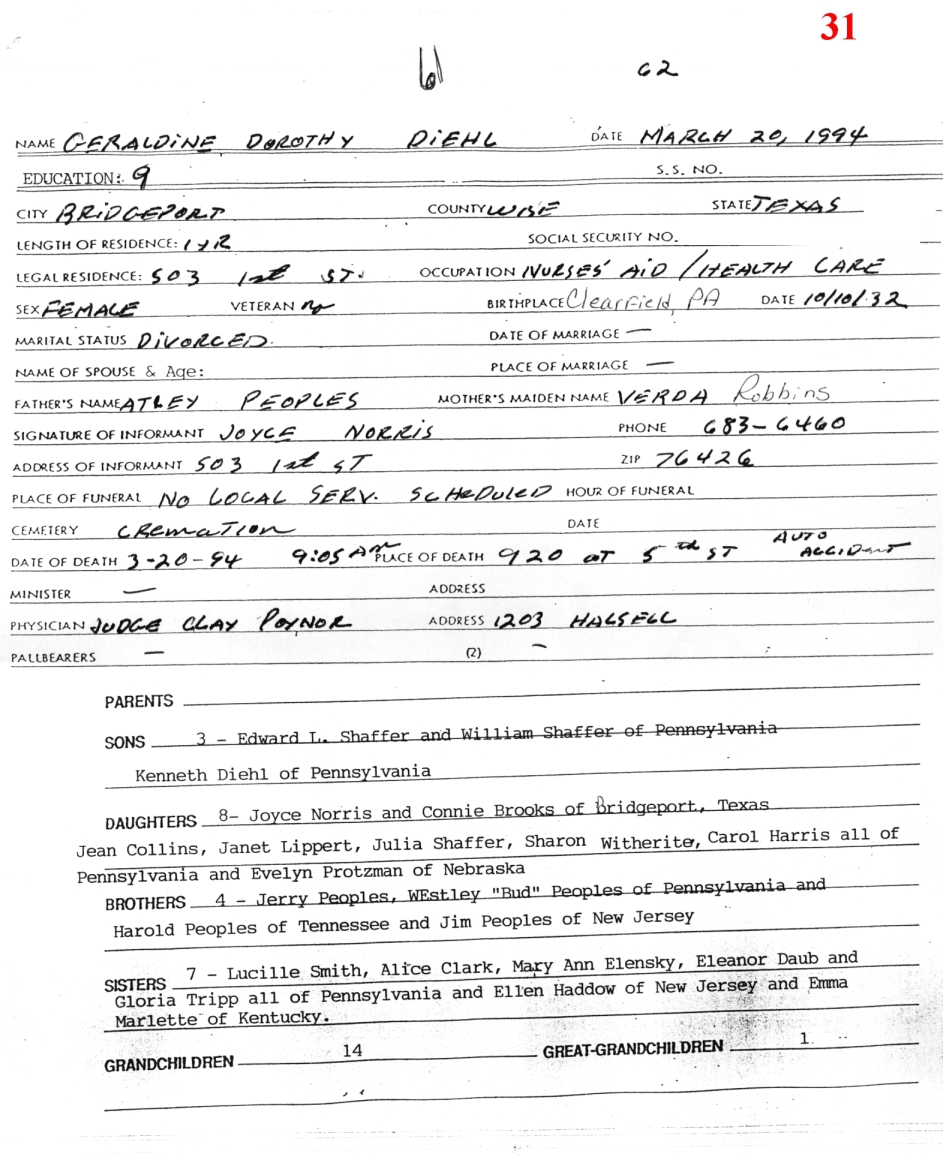 31
61 62
NAME GERALDINE DOROTHY DIEHL DATE MARCH 20, 1994
EDUCATION: 9 S.S. NO.
CITY BRIDGEPORT COUNTY WISE STATE TEXAS
LENGTH OF RESIDENCE: 1 YR SOCIAL SECURITY NO.
LEGAL RESIDENCE: 503 1st ST. OCCUPATION NURSES' AID / HEALTH CARE
SEX FEMALE VETERAN no BIRTHPLACE Clearfield, PA DATE 10/10/32
MARITAL STATUS DIVORCED. DATE OF MARRIAGE —
NAME OF SPOUSE & Age: PLACE OF MARRIAGE —
FATHER'S NAME ATLEY PEOPLES MOTHER'S MAIDEN NAME VERDA Robbins
SIGNATURE OF INFORMANT JOYCE NORRIS PHONE 683-6460
ADDRESS OF INFORMANT 503 1st ST ZIP 76426
PLACE OF FUNERAL NO LOCAL SERV. SCHEDULED HOUR OF FUNERAL
CEMETERY CREMATION DATE
DATE OF DEATH 3-20-94 9:05 AM PLACE OF DEATH 920 AT 5th ST AUTO ACCIDENT
MINISTER — ADDRESS
PHYSICIAN JUDGE CLAY POYNOR ADDRESS 1203 HALSELL
PALLBEARERS — (2) —
PARENTS
SONS 3 - Edward L. Shaffer and William Shaffer of Pennsylvania
Kenneth Diehl of Pennsylvania
DAUGHTERS 8- Joyce Norris and Connie Brooks of Bridgeport, Texas
Jean Collins, Janet Lippert, Julia Shaffer, Sharon Witherite, Carol Harris all of
Pennsylvania and Evelyn Protzman of Nebraska
BROTHERS 4 - Jerry Peoples, WEstley "Bud" Peoples of Pennsylvania and
Harold Peoples of Tennessee and Jim Peoples of New Jersey
SISTERS 7 - Lucille Smith, Alice Clark, Mary Ann Elensky, Eleanor Daub and
Gloria Tripp all of Pennsylvania and Ellen Haddow of New Jersey and Emma
Marlette of Kentucky.
GRANDCHILDREN 14 GREAT-GRANDCHILDREN 1